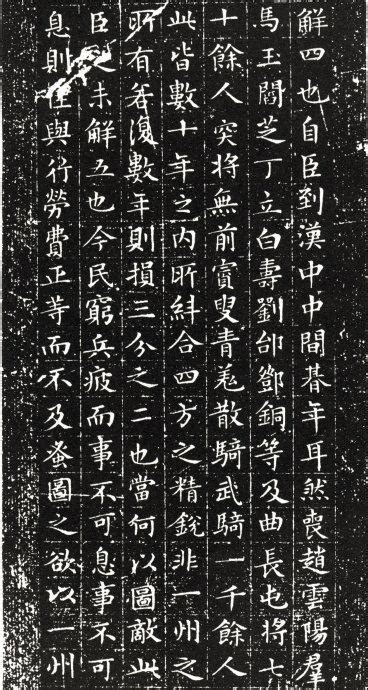 解四也自臣到漢中中間朞年耳然喪趙雲陽羣
馬王閻芝丁立白壽劉郃鄧銅等及曲長屯將七
十餘人突將無前賨叟青羌散騎武騎一千餘人
此皆數十年之內所糾合四方之精銳非一州之
所有若復數年則損三分之二也當何以圖敵此
臣之未解五也今民窮兵疲而事不可息事不可
息則住與行勞費正等而不及蚤圖之欲以一州